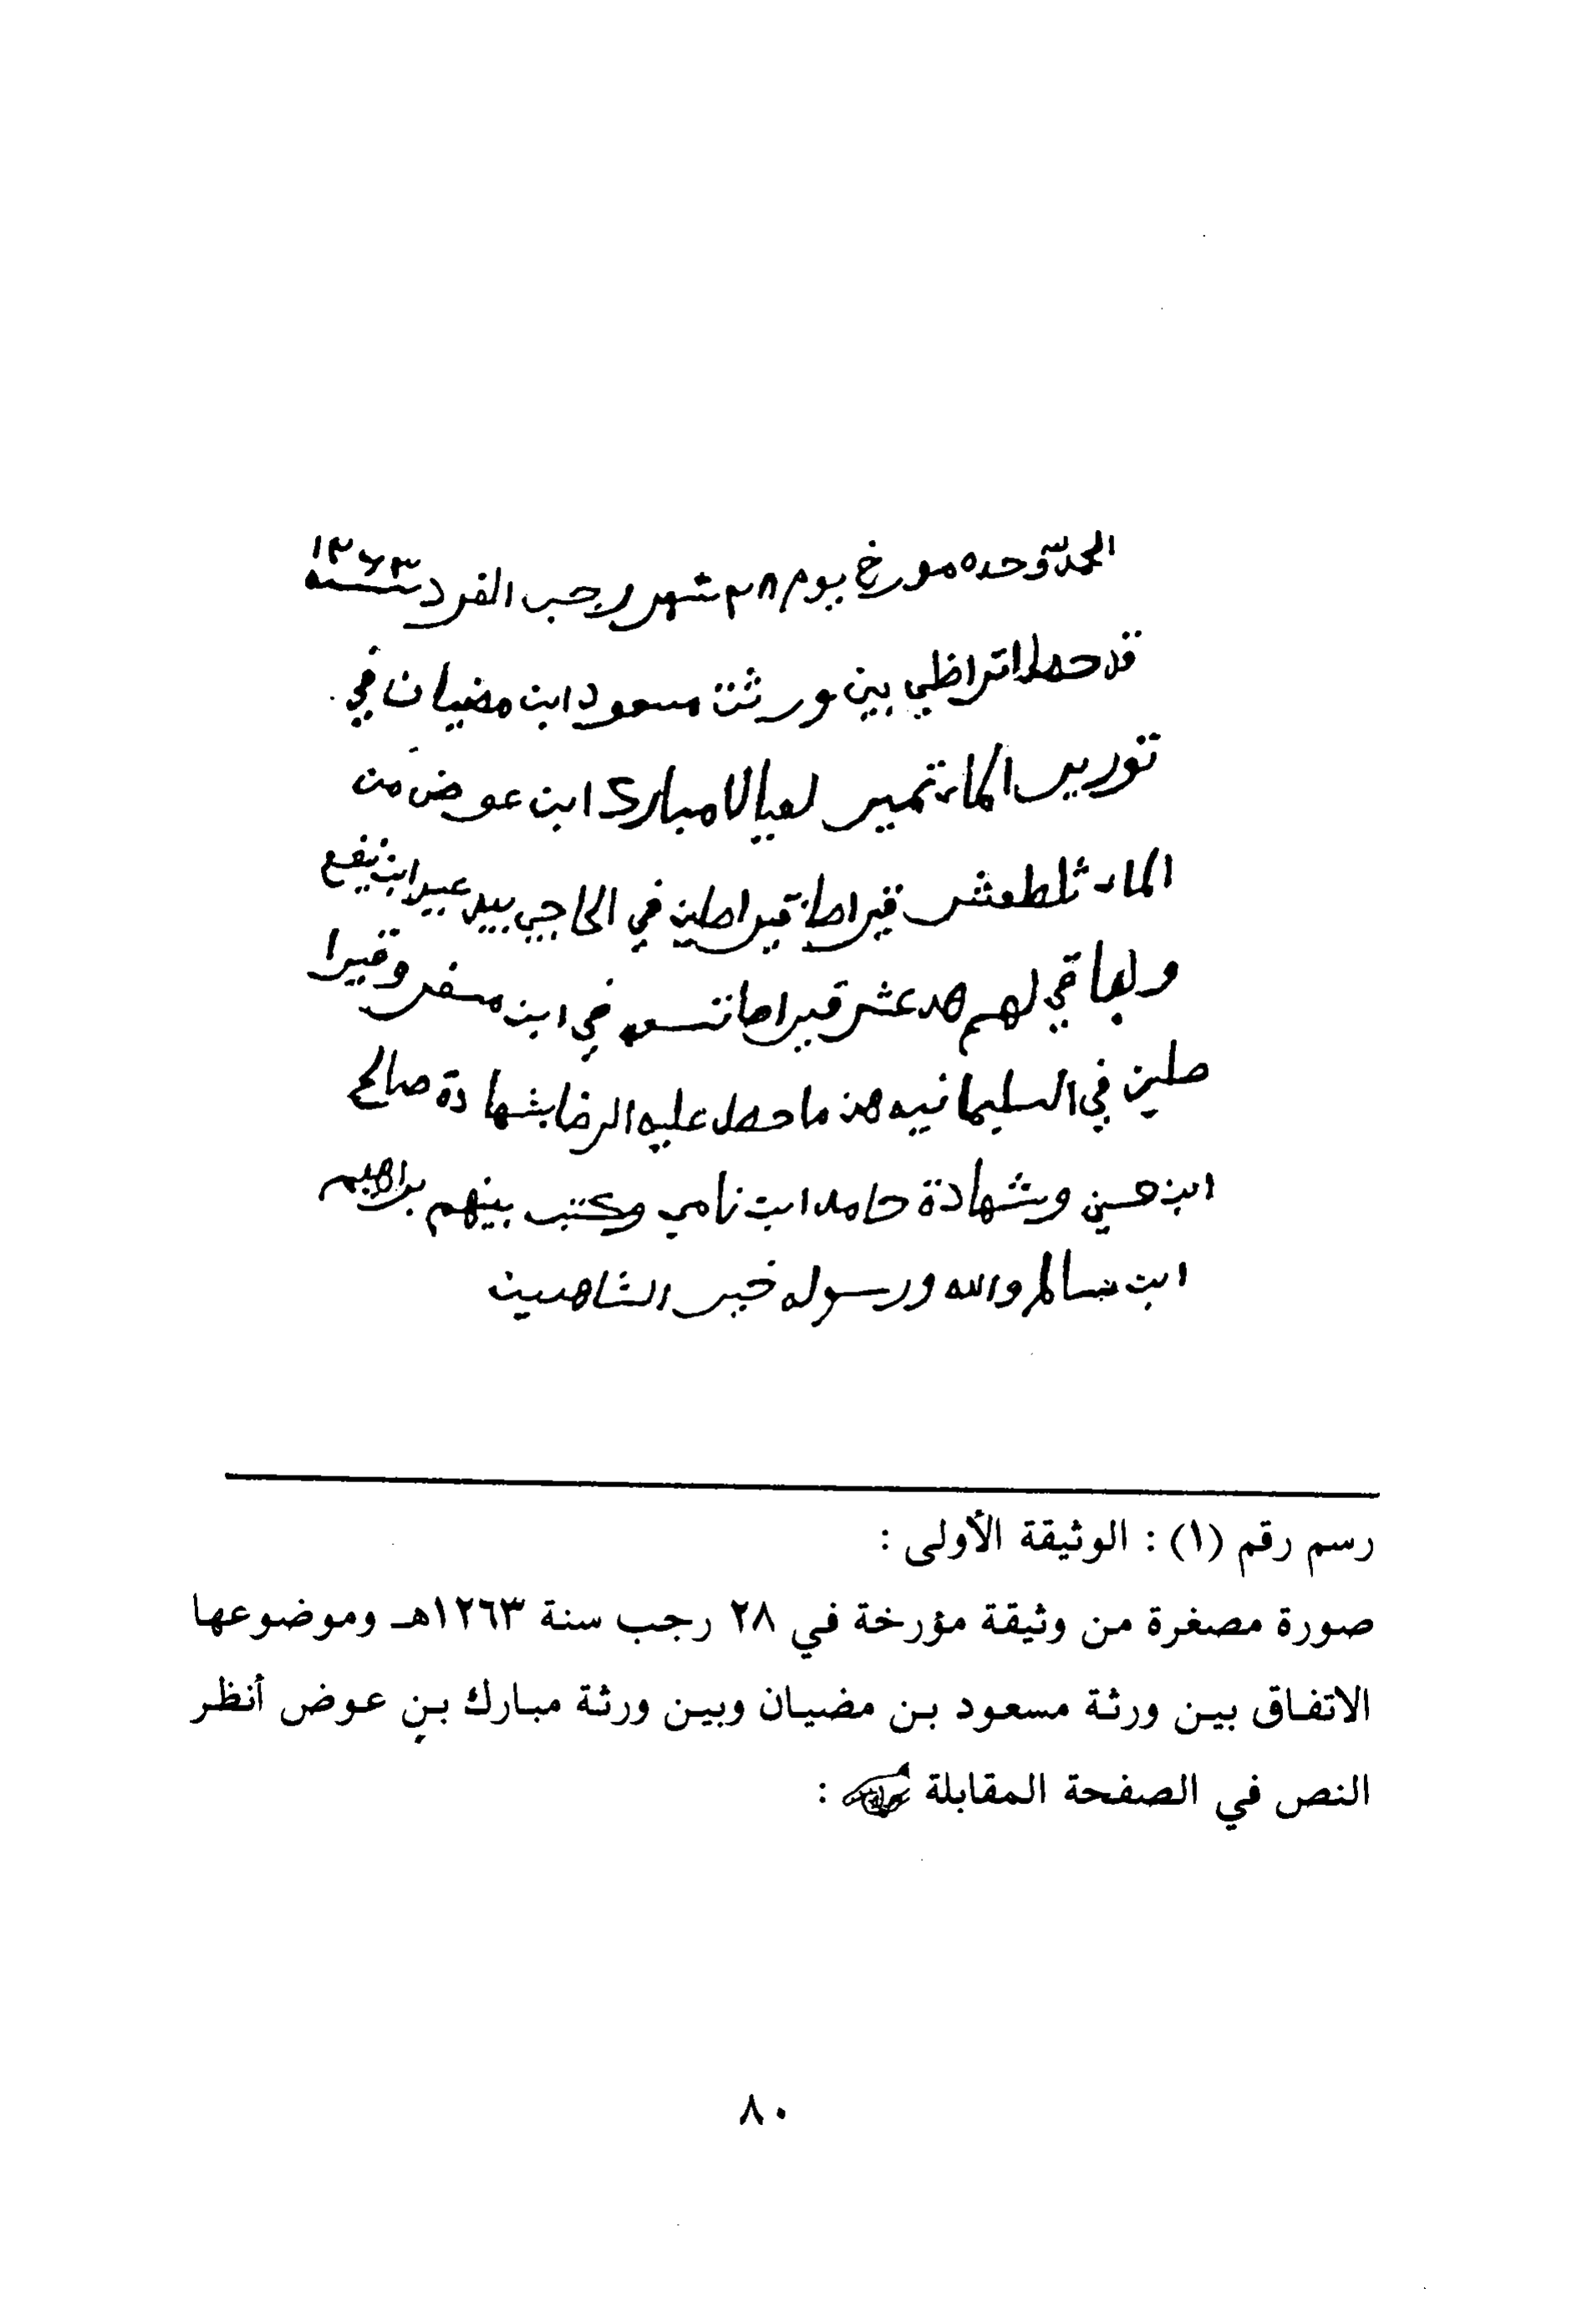 الحمد لله وحده مورخ يوم ٢٨ شهر رجب الفرد سنة ١٢٦٣
قد حصل اتراظي بين ورثت مسعود ابن مضيان في
توريد الماء تمير لعيال مبارك ابن عوض من
الماء ثلطعشر قيراط قيراطين في الحاجي بيد عبيد ابن نيفع
ولباقي لهم هدعشر قيراط تسعه في ابن سفر وقيرا
طين في السليمانيه هذ ما حصل عليه الرضا بشهادة صالح
ابن حسين وشهادة حامد ابن نامي وكتب بينهم براهيم
ابن سالم والله ورسوله خير الشاهدين
رسم رقم (١) : الوثيقة الأولى :
صورة مصغرة من وثيقة مؤرخة في ٢٨ رجب سنة ١٢٦٣هـ وموضوعها
الاتفاق بين ورثة مسعود بن مضيان وبين ورثة مبارك بن عوض أنظر
النص في الصفحة المقابلة :
٨٠